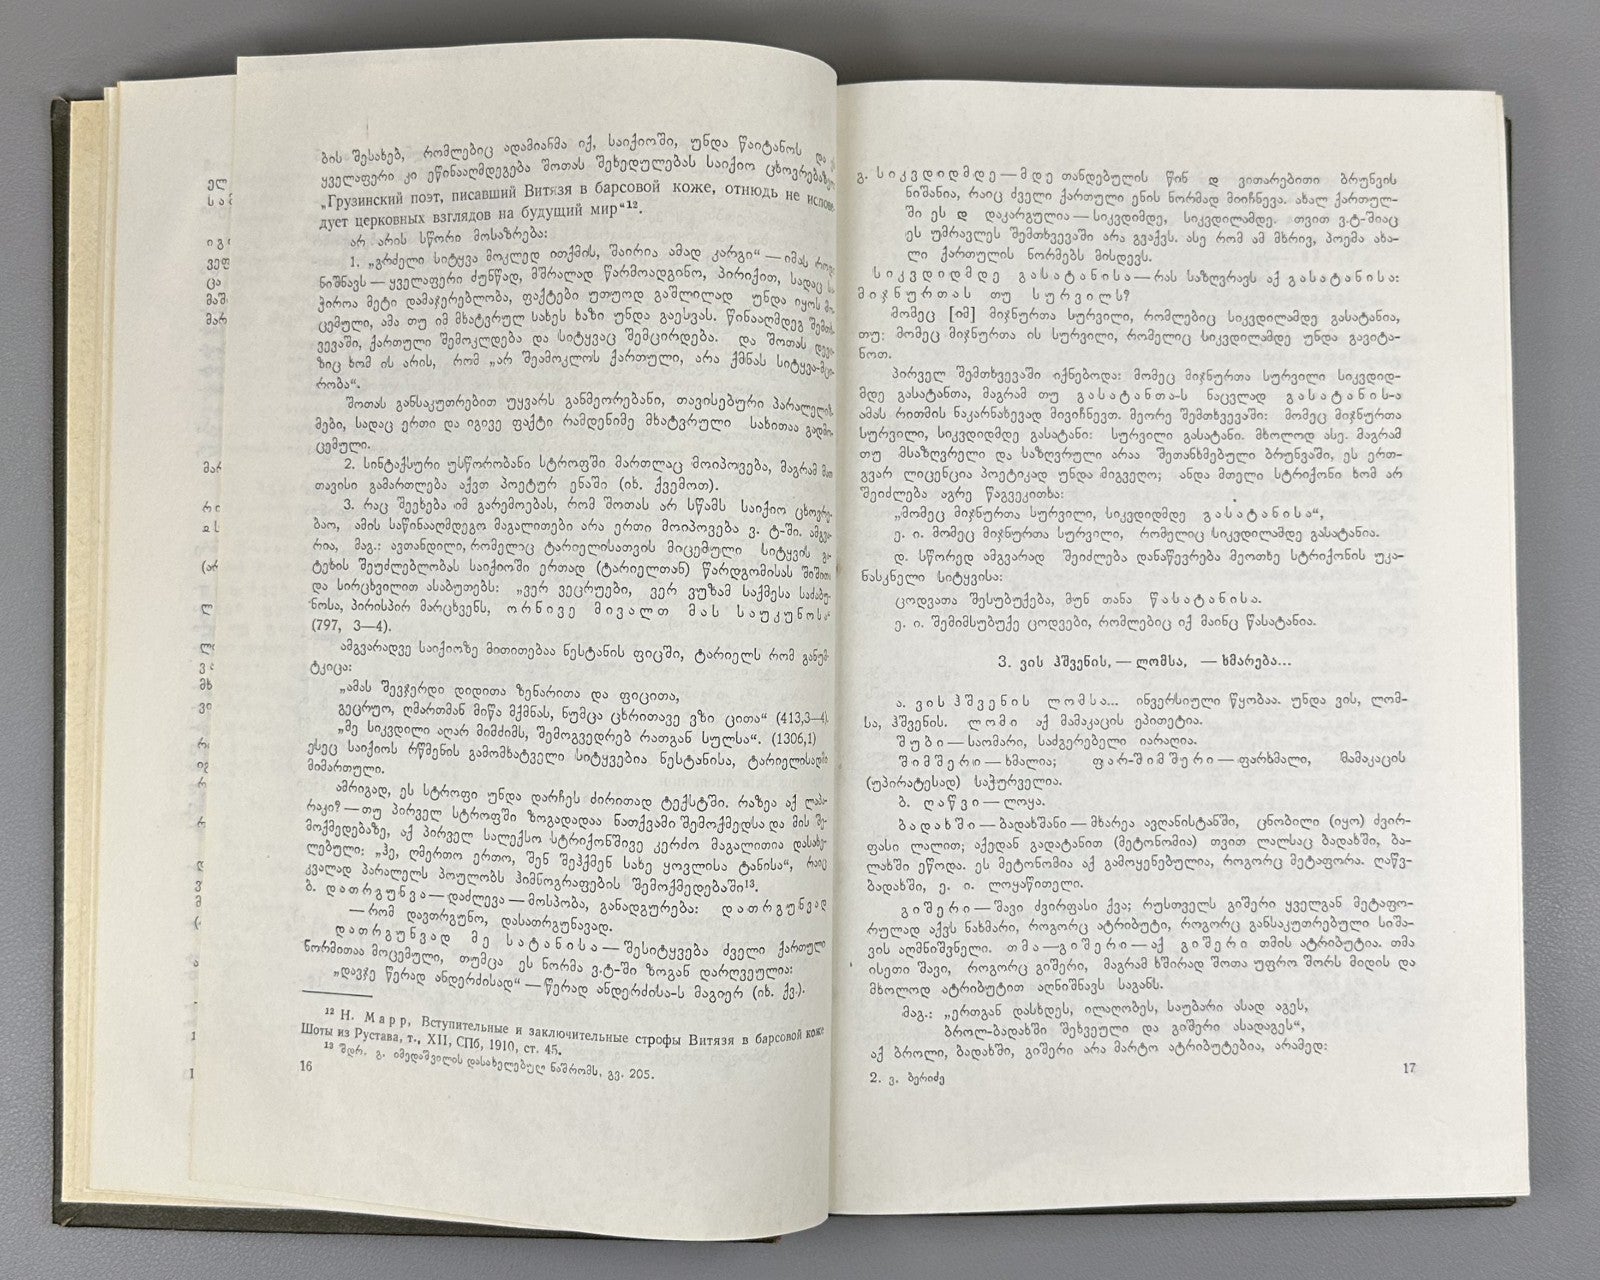 ბის შესახებ, რომლებიც ადამიანმა იქ, საიქიოში, უნდა წაიტანოს და
ყველაფერი კი ეწინააღმდეგება შოთას შეხედულებას საიქიო ცხოვრებაზე
„Грузинский поэт, писавший Витязя в барсовой коже, отнюдь не испове-
дует церковных взглядов на будущий мир“¹².
არ არის სწორი მოსაზრება:
1. „გრძელი სიტყვა მოკლედ ითქმის, შაირია ამად კარგი“ — იმას როდი
ნიშნავს — ყველაფერი ძუნწად, მშრალად წარმოადგინო, პირიქით, სადაც სა-
ჭიროა მეტი დამაჯერებლობა, ფაქტები უთუოდ გაშლილად უნდა იყოს მო-
ცემული, ამა თუ იმ მხატვრულ სახეს ხაზი უნდა გაესვას. წინააღმდეგ შემთხ-
ვევაში, ქართული შემოკლდება და სიტყვაც შემცირდება. და შოთას დევი-
ზიც ხომ ის არის, რომ „არ შეამოკლოს ქართული, არა ქმნას სიტყვა-მცი-
რობა“.
შოთას განსაკუთრებით უყვარს განმეორებანი, თავისებური პარალელიზ-
მები, სადაც ერთი და იგივე ფაქტი რამდენიმე მხატვრული სახითაა გადმო-
ცემული.
2. სინტაქსური უსწორობანი სტროფში მართლაც მოიპოვება, მაგრამ მათ
თავისი გამართლება აქვთ პოეტურ ენაში (იხ. ქვემოთ).
3. რაც შეეხება იმ გარემოებას, რომ შოთას არ სწამს საიქიო ცხოვრე-
ბაო, ამის საწინააღმდეგო მაგალითები არა ერთი მოიპოვება ვ. ტ-ში. ამგვა-
რია, მაგ.: ავთანდილი, რომელიც ტარიელისათვის მიცემული სიტყვის გა-
ტეხის შეუძლებლობას საიქიოში ერთად (ტარიელთან) წარდგომისას შიშით
და სირცხვილით ასაბუთებს: „ვერ ვეცრუები, ვერ ვუზამ საქმესა საძაბუ-
ნოსა, პირისპირ მარცხვენს, ორნივე მივალთ მას საუკუნოსა“
(797, 3—4).
ამგვარადვე საიქიოზე მითითებაა ნესტანის ფიცში, ტარიელს რომ განუმ-
ტკიცა:
„ამას შევჯერდი დიდითა ზენარითა და ფიცითა,
გეცრუო, ღმართმან მიწა მქმნას, ნუმცა ცხრითავე ვზი ცითა“ (413,3—4).
„მე სიკვდილი აღარ მიმძიმს, შემოგვედრებ რათგან სულსა“. (1306,1)
ესეც საიქიოს რწმენის გამომხატველი სიტყვებია ნესტანისა, ტარიელისადმი
მიმართული.
ამრიგად, ეს სტროფი უნდა დარჩეს ძირითად ტექსტში. რაზეა აქ ლაპა-
რაკი? — თუ პირველ სტროფში ზოგადადაა ნათქვამი შემოქმედსა და მის შე-
მოქმედებაზე, აქ პირველ სალექსო სტრიქონშივე კერძო მაგალითია დასახე-
ლებული: „ჰე, ღმერთო ერთო, შენ შეჰქმენ სახე ყოვლისა ტანისა“, რაიც
კვალად პარალელს პოულობს ჰიმნოგრაფების შემოქმედებაში¹³.
ბ. დათრგუნვა — დაძლევა — მოსპობა, განადგურება: დათრგუნვად
— რომ დავთრგუნო, დასათრგუნავად.
დათრგუნვად მე სატანისა — შესიტყვება ძველი ქართული
ნორმითაა მოცემული, თუმცა ეს ნორმა ვ.ტ-ში ზოგან დარღვეულია:
„დავჯე წერად ანდერძისად“ — წერად ანდერძისა-ს მაგიერ (იხ. ქვ.).
¹² Н. Марр, Вступительные и заключительные строфы Витязя в барсовой коже
Шоты из Рустава, т., XII, СПб, 1910, ст. 45.
¹³ შდრ. გ. იმედაშვილის დასახელებულ ნაშრომს, გვ. 205.
16
გ. სიკვდიდმდე — მდე თანდებულის წინ დ ვითარებითი ბრუნვის
ნიშანია, რაიც ძველი ქართული ენის ნორმად მიიჩნევა. ახალ ქართულ-
ში ეს დ დაკარგულია — სიკვდიმდე, სიკვდილამდე. თვით ვ.ტ-შიაც
ეს უმრავლეს შემთხვევაში არა გვაქვს. ასე რომ ამ მხრივ, პოემა ახა-
ლი ქართულის ნორმებს მისდევს.
სიკვდიდმდე გასატანისა — რას საზღვრავს აქ გასატანისა:
მიჯნურთას თუ სურვილს?
მომეც [იმ] მიჯნურთა სურვილი, რომლებიც სიკვდილამდე გასატანია,
თუ: მომეც მიჯნურთა ის სურვილი, რომელიც სიკვდილამდე უნდა გავიტა-
ნოთ.
პირველ შემთხვევაში იქნებოდა: მომეც მიჯნურთა სურვილი სიკვდიდ-
მდე გასატანთა, მაგრამ თუ გასატანთა-ს ნაცვლად გასატანის-ა
ამას რითმის ნაკარნახევად მივიჩნევთ. მეორე შემთხვევაში: მომეც მიჯნურთა
სურვილი, სიკვდიდმდე გასატანი: სურვილი გასატანი. მხოლოდ ასე. მაგრამ
თუ მსაზღვრელი და საზღვრული არაა შეთანხმებული ბრუნვაში, ეს ერთ-
გვარ ლიცენცია პოეტიკად უნდა მიგვეღო; ანდა მთელი სტრიქონი ხომ არ
შეიძლება აგრე წაგვეკითხა:
„მომეც მიჯნურთა სურვილი, სიკვდიდმდე გასატანისა“,
ე. ი. მომეც მიჯნურთა სურვილი, რომელიც სიკვდილამდე გასატანია.
დ. სწორედ ამგვარად შეიძლება დანაწევრება მეოთხე სტრიქონის უკა-
ნასკნელი სიტყვისა:
ცოდვათა შესუბუქება, მუნ თანა წასატანისა.
ე. ი. შემიმსუბუქე ცოდვები, რომლებიც იქ მაინც წასატანია.
3. ვის ჰშვენის, — ლომსა, — ხმარება...
ა. ვის ჰშვენის ლომსა... ინვერსიული წყობაა. უნდა ვის, ლომ-
სა, ჰშვენის. ლომი აქ მამაკაცის ეპითეტია.
შუბი — საომარი, საძგერებელი იარაღია.
შიმშერი — ხმალია; ფარ-შიმშერი — ფარხმალი, მამაკაცის
(უპირატესად) საჭურველია.
ბ. ღაწვი — ლოყა.
ბადახში — ბადახშანი — მხარეა ავღანისტანში, ცნობილი (იყო) ძვირ-
ფასი ლალით; აქედან გადატანით (მეტონომია) თვით ლალსაც ბადახში, ბა-
ლახში ეწოდა. ეს მეტონომია აქ გამოყენებულია, როგორც მეტაფორა. ღაწვ-
ბადახში, ე. ი. ლოყაწითელი.
გიშერი — შავი ძვირფასი ქვა; რუსთველს გიშერი ყველგან მეტაფო-
რულად აქვს ნახმარი, როგორც ატრიბუტი, როგორც განსაკუთრებული სიშა-
ვის აღმნიშვნელი. თმა — გიშერი — აქ გიშერი თმის ატრიბუტია. თმა
ისეთი შავი, როგორც გიშერი, მაგრამ ხშირად შოთა უფრო შორს მიდის და
მხოლოდ ატრიბუტით აღნიშნავს საგანს.
მაგ.: „ერთგან დასხდეს, ილაღობეს, საუბარი ასად აგეს,
ბროლ-ბადახში შეხვეული და გიშერი ასადაგეს“,
აქ ბროლი, ბადახში, გიშერი არა მარტო ატრიბუტებია, არამედ:
2. ვ. ბერიძე
17